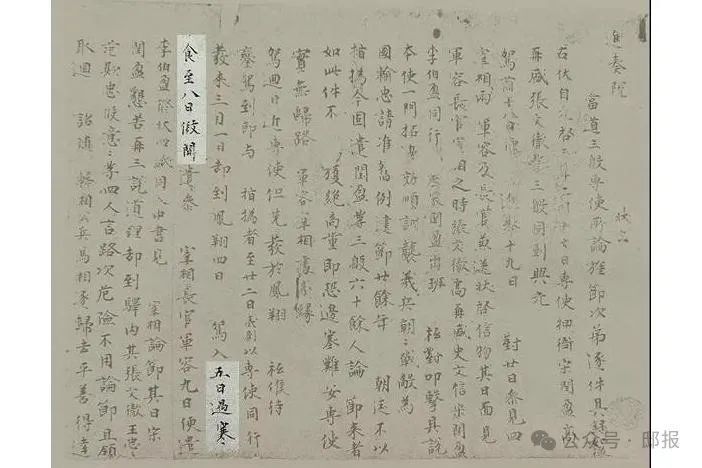 進奏院　狀上
當道三般專使所論旌節次第逐件具錄如後
右伏自光啓三年二月十七日專使押衙宋閏盈高
再盛張文徹等三般同到興元
駕前十八日　十九日　對廿日參見四
宰相兩軍容及長官兼送狀啓信物其日面見
軍容長官宰相之時張文徹高再盛史文信宋閏盈
李伯盈同行　宋閏盈出班　祗對叩擊具說
本使一門拓邊効順訓襲義兵朝朝戰敵為
國輸忠請准舊例建節廿餘年　朝廷不以
指撝今因遣閏盈等三般六十餘人論　節來者
如此件不　獲絕商量即恐邊塞難安專使
實無歸路　軍容宰相處分緣
駕迴日近專使但先發於鳳翔　祗候待
鑾駕到即與　指撝者至廿二日夷則以專使同行
發來三月一日却到鳳翔四日　駕入五日遇寒
食至八日假開遣參　宰相長官軍容九日便遣
李伯盈修狀四紙同入中書見　宰相論節其日宋
閏盈懇苦再三說道理却到驛內其張文徹王忠忠
范欺忠段意意等四人言路次危險不用論節且領
取迴　詔隨韓相公兵馬相逐歸去平善得達
公众号 · 邸报